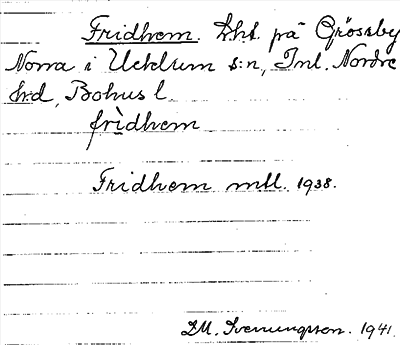 Fridhem. Lht. på Grössby
Norra i Ucklum s:n, Inl. Nordre
hrd, Bohus l.
frìdhem
Fridhem mtl. 1938.
D.M. Svenungsson. 1941.